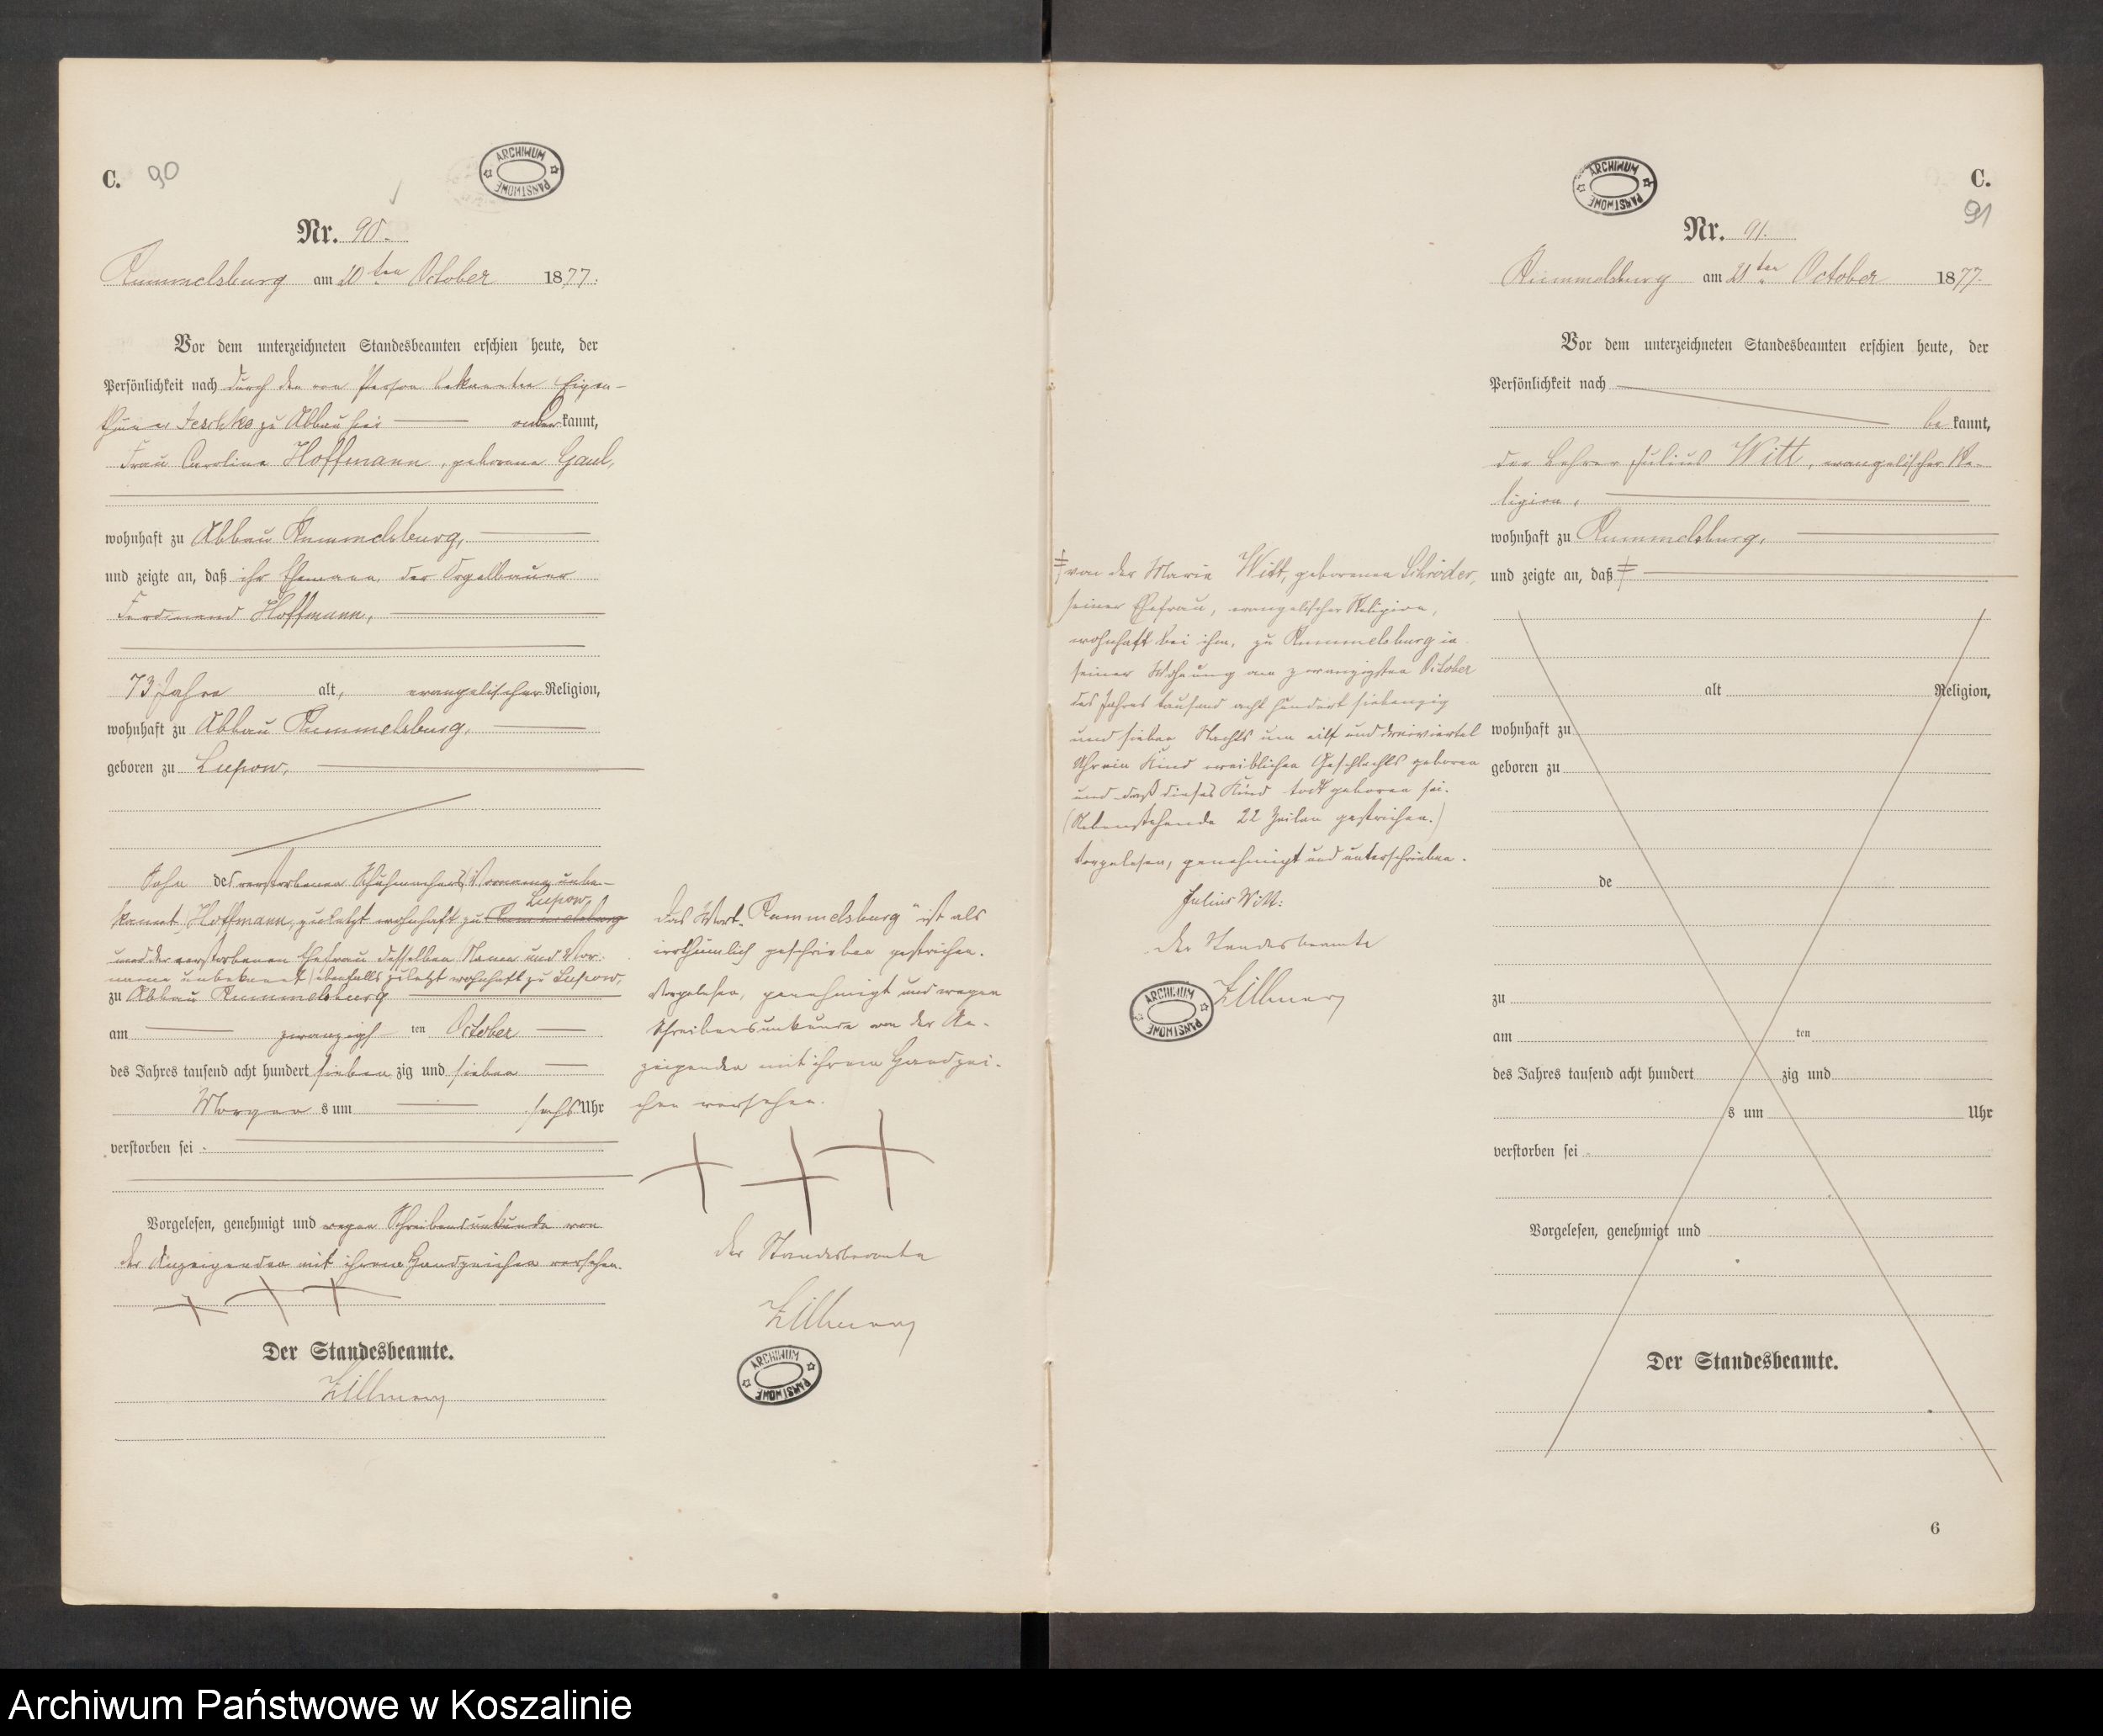 C. 90
ARCHIWUM PAŃSTWOWE
Nr. 90.
Rummelsburg am 20ten October 1877.
Vor dem unterzeichneten Standesbeamten erschien heute, der
Persönlichkeit nach durch den von Person bekannten Eigen-
thümer Jeschke zu Abbau hier kannt,
Frau Caroline Hoffmann, geborene Gaul,
wohnhaft zu Abbau Rummelsburg,
und zeigte an, daß ihr Ehemann, der Orgelbauer
Ferdinand Hoffmann,
73 Jahre alt, evangelischer Religion,
wohnhaft zu Abbau Rummelsburg,
geboren zu Lupow,
Sohn des verstorbenen Schuhmachers, Vorname unbe-
Lupow,
kannt, Hoffmann, zuletzt wohnhaft zu Rummelsburg
und der verstorbenen Ehefrau desselben Namen und Vor-
name unbekannt, ebenfalls zuletzt wohnhaft zu Lupow,
zu Abbau Rummelsburg
am zwanzigsten October
des Jahres tausend acht hundert siebenzig und sieben
Morgens um sechs Uhr
verstorben sei.
Vorgelesen, genehmigt und wegen Schreibensunkunde von
der Anzeigenden mit ihrem Handzeichen versehen.
+ + +
Der Standesbeamte.
Zillmer
Das Wort „Rummelsburg" ist als
irrthümlich geschrieben gestrichen.
Vorgelesen, genehmigt und wegen
Schreibensunkunde von der An-
zeigenden mit ihrem Handzei-
chen versehen.
+ + +
Der Standesbeamte
ARCHIWUM PAŃSTWOWE
ARCHIWUM PAŃSTWOWE
C.
91
Nr. 91.
Rummelsburg am 21ten October 1877.
Vor dem unterzeichneten Standesbeamten erschien heute, der
Persönlichkeit nach
be kannt,
der Lehrer Julius Witt, evangelischer Re-
ligion,
wohnhaft zu Rummelsburg,
und zeigte an, daß ‡
alt Religion,
wohnhaft zu
geboren zu
de
zu
am ten
des Jahres tausend acht hundert zig und
s um Uhr
verstorben sei
Vorgelesen, genehmigt und
Der Standesbeamte.
6
‡ von der Maria Witt, geborenen Schröder,
seiner Ehefrau, evangelischer Religion,
wohnhaft bei ihm, zu Rummelsburg in
seiner Wohnung am zwanzigsten October
des Jahres tausend acht hundert siebenzig
und sieben Nachts um eilf und dreiviertel
Uhr ein Kind weiblichen Geschlechts geboren
und daß dieses Kind todt geboren sei.
(Nebenstehende 22 Zeilen gestrichen.)
Vorgelesen, genehmigt und unterschrieben.
Julius Witt.
Der Standesbeamte
ARCHIWUM PAŃSTWOWE
Archiwum Państwowe w Koszalinie